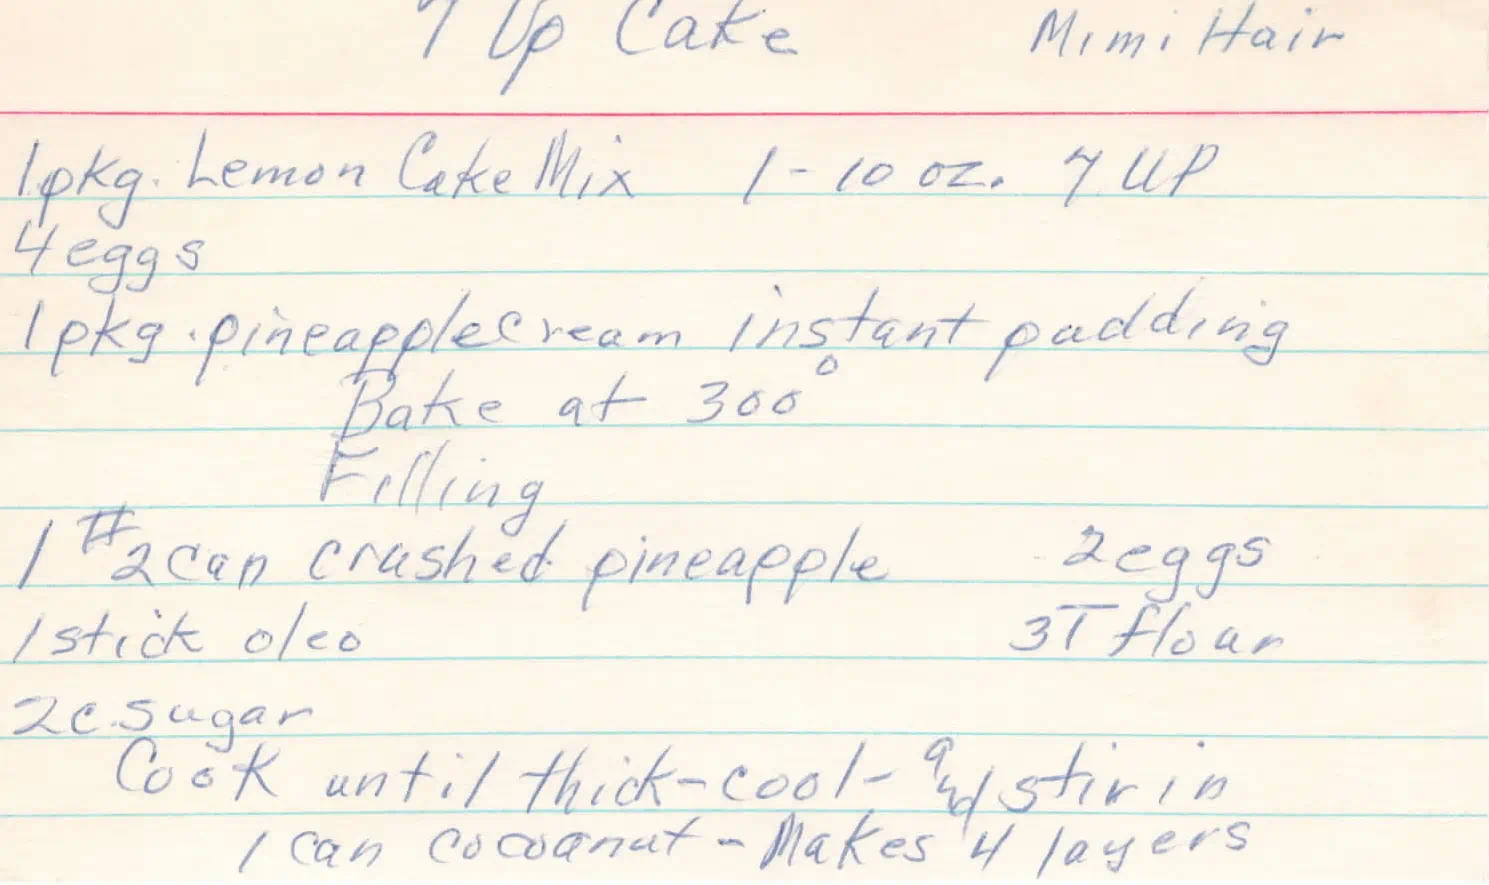 7 Up Cake Mimi Hair
1 pkg. Lemon Cake Mix 1 - 10 oz. 7 UP
4 eggs
1 pkg. pineapple cream instant pudding
Bake at 300°
Filling
1 #2 can crushed pineapple 2 eggs
1 stick oleo 3T flour
2 c. sugar
Cook until thick - cool - and stir in
1 can cocoanut - Makes 4 layers